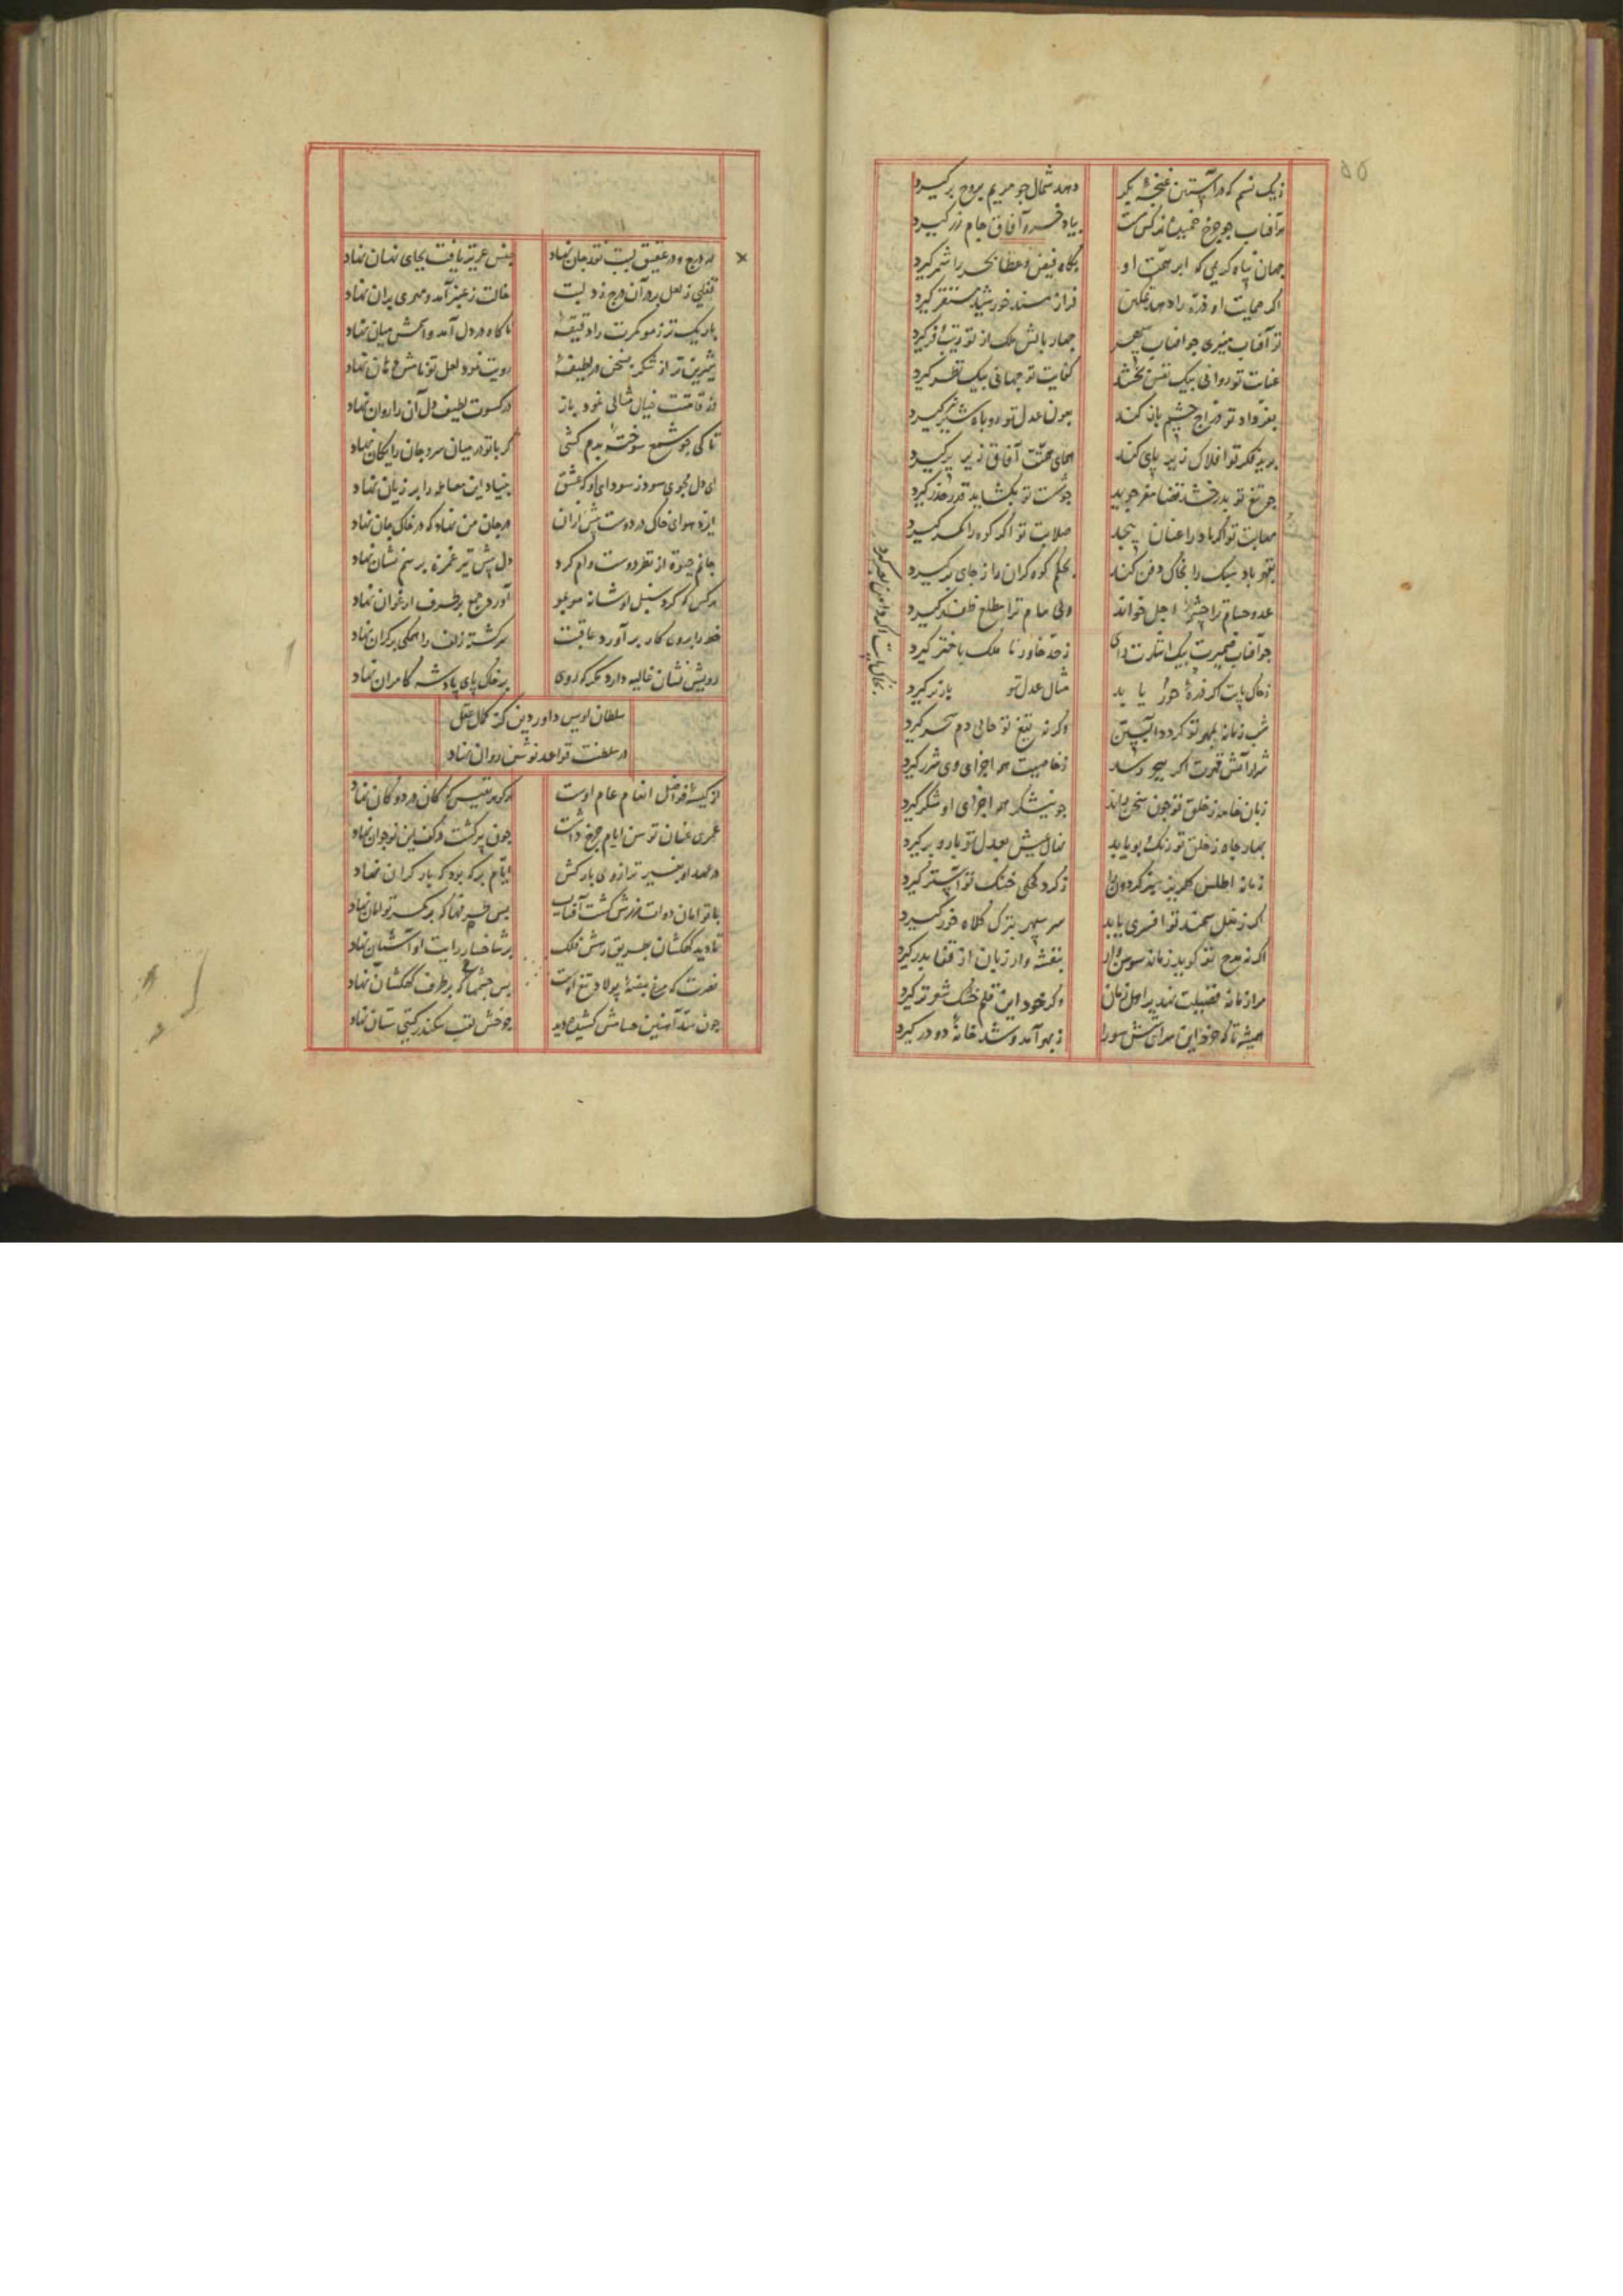 زیک نسیم که در آستین غنچهٔ بکر
دمد شمال چو مریم بروح برگیرد
بیاد خسرو آفاق جام زر گیرد
جهان پناه کریمی که ابر همت او
بگاه فیض و عطا بحر را شمر گیرد
اگر حمایت او ذره را دهد تمکین
فراز مسند خورشید مستقر گیرد
تو آفتاب منیری
چهار بالش ملک از تو زیب و فر گیرد
عنایت تو روانی بیک نفس بخشد
کفایت تو جهانی بیک نظر گیرد
بعون عدل تو روباه شیر نر گیرد
برید فکر تو افلاک زیر پای کند
همای همتت آفاق زیر پر گیرد
چو تیغ تو بدرخشد قضا مفر جوید
چو شست تو بگشاید قدر حذر گیرد
مهابت تو اگر باد را عنان پیچد
صلابت تو اگر کوه را کمر گیرد
بقهر باد سبک را بخاک دفن کند
بحلم کوه گران را ز جای برگیرد
عدو حسام ترا چشمهٔ اجل خواند
ولی مام ترا مطلع ظفر گیرد
چو آفتاب ضمیرت بیک اشارت رای
ز حد خاور تا ملک باختر گیرد
ز خاک پایت اگر ذرهٔ حور یابد
مثال عدل تو باز برگیرد
بخاک پایت اگر دامن
شب زمانه بمهر تو گردد آبستن
وگرنه تیغ تو حالی دم سحر گیرد
شرار آتش قهرت اگر ببحر رسد
ز خاصیت همه اجزای وی شرر گیرد
زبان خامه ز خلق تو چون سخن راند
چو نیشکر همه اجزای او شکر گیرد
بهار جاه ز خلق تو رنگ و بو یابد
نهال عیش بعدل تو بار و بر گیرد
زمانه اطلس
ز گرد کحلی خنگ تو آستر گیرد
اگر ز نعل سمند تو افسری یابد
سر سپهر بترک کلاه خور گیرد
اگر نه مدح تو گوید زمانه سوسن وار
بنفشه وار زبان از قفا بدر گیرد
مرا زمانه فضیلت نهد بر اهل زمان
وگر خود این قلم خشک شوره تر گیرد
همیشه تا که
ز بهر آمد و شد خانهٔ دو در گیرد
در درج در عقیق لبت نقد جان نهاد
جنس عزیز یافت بجای نهان نهاد
قفلی ز لعل بر در آن درج زد لبت
خالت ز عنبر آمد و مهری بر آن نهاد
باریکتر ز مو کمرت را دقیقهٔ
ناگاه در دل آمد و اسمش میان نهاد
شیرین تر از شکر بسخن در لطیفهٔ
رویت نمود لعل تو نامش دهان نهاد
وز قامتت خیال مثالی نمود باز
در کسوت لطیف دل آن را روان نهاد
تا کی چو شمع سوخته بدم کشی
گر با تو در میان سر و جان رایگان نهاد
ای دل مجوی سود ز سودای او که عشق
بنیاد این معامله را بر زیان نهاد
ایزد هوای خاک در دوست پیش از آن
در جان من نهاد که در خاک جان نهاد
جانم چو تن از نظر دوست وام کرد
دل پیش تیر غمزه برسم نشان نهاد
هر کس که کرد سنبل او شانه مو بمو
آورد جمع بر طرف ارغوان نهاد
خود را برون کار بر آورد عاقبت
سررشته زلف را همگی بر کران نهاد
رویش نشان غالیه دارد مگر که روی
بر خاک پای پادشه کامران نهاد
سلطان اویس داور دین کز کمال عقل
در سلطنت قواعد نوشین روان نهاد
از کیسهٔ فواضل انعام عام اوست
هر گوهر نفیس که کان در دکان نهاد
عمری عنان توسن ایام چرخ داشت
چون پیر گشت در کف این نوجوان نهاد
در عهد او بغیر ترازوی بارکش
ایام بر که بود که بار گران نهاد
با تو امان دولت
تا دید کهکشان بطریق رهش فلک
بس چشمها که بر طرف کهکشان نهاد
نصرت که مرغ بیضهٔ پولاد تیغ اوست
بر شاخسار رایت او آشیان نهاد
چون سد آهنین حسامش کشیده دید
چرخش لقب سکندر گیتی ستان نهاد